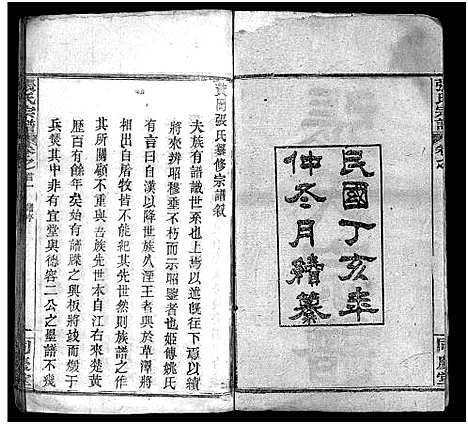 張氏宗譜
民國丁亥年
仲冬月續纂
黃岡張氏纂修宗譜敘
夫族有譜識世系也上以述既往下焉以續
將來辨昭穆垂不朽而示昭鑒者也姬傳姚氏
有言曰自漢以降世族久湮王者興於草澤將
相出自屠牧皆不能紀其先世然則族譜之作
其所關顧不重與吾族先世本自江右來楚黃
歷百有餘年矣始有譜牒之興板將竣而燬于
兵燹其中非有宜堂與德容二公之墨譜不幾
張氏宗譜
卷之首一